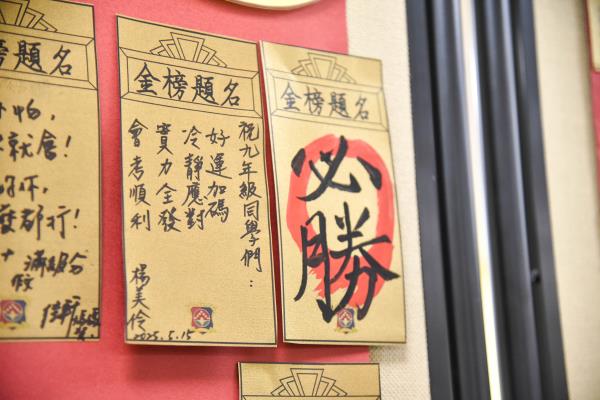 金榜題名
必勝
金榜題名
祝九年級同學們：
好運加碼
冷靜應對
實力全發
會考順利
楊美伶
2025.5.15
榜題名
怕，
就會！
都行！
滿級分